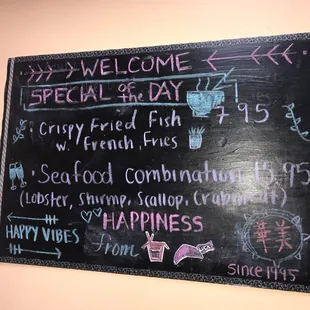 WELCOME
SPECIAL OF THE DAY
• Crispy Fried Fish 7.95
w. French Fries
• Seafood combination 15.95
(Lobster, Shirmp, Scallop, Crabmeat)
HAPPINESS
HAPPY VIBES
from
華美
since 1995